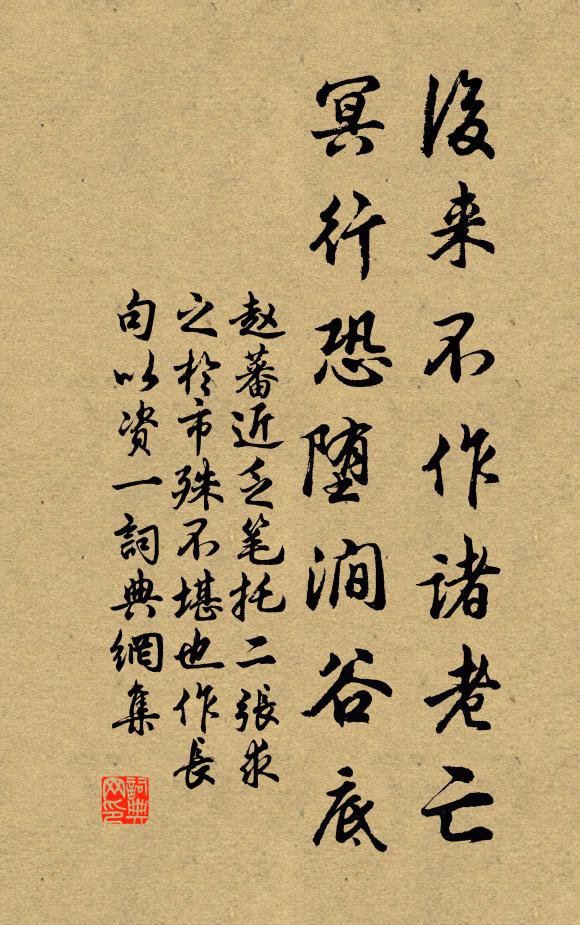 後来不作諸老亡
冥行恐堕澗谷底
赵蕃近乏笔托二張求
之於市殊不堪也作長
句以资一詞典網集
詞典網印